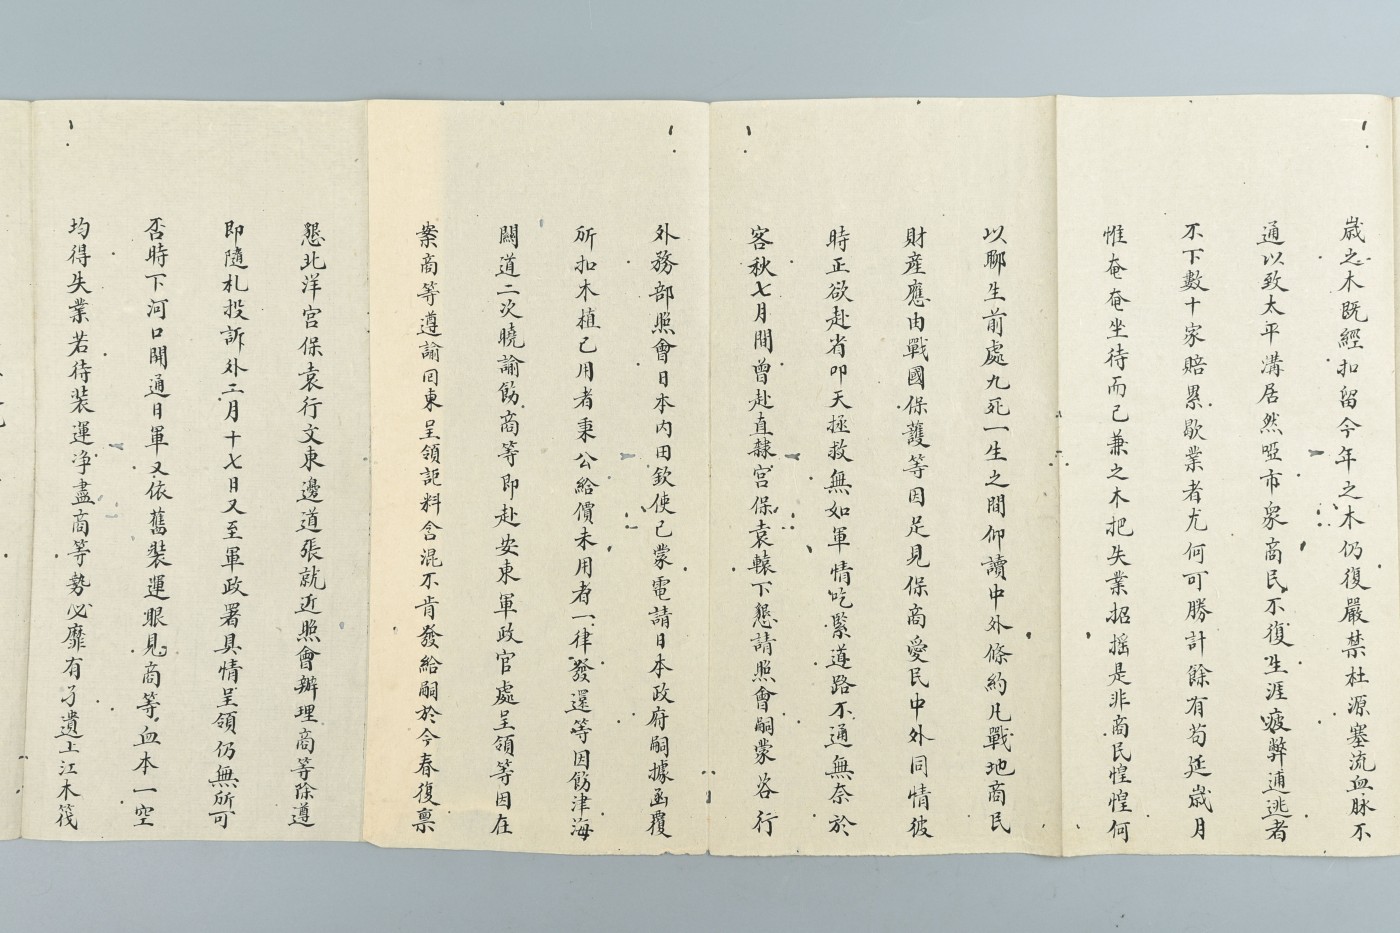 歲之木既經扣留今年之木仍復嚴禁杜源塞流血脉不
通以致太平溝居然啞市衆商民不復生涯疲弊逋逃者
不下數十家賠累歇業者尤何可勝計餘有苟延歲月
惟奄奄坐待而已兼之木把失業招搖是非商民惶惶何
以聊生前處九死一生之間仰讀中外條約凡戰地商民
財產應由戰國保護等因足見保商愛民中外同情彼
時正欲赴省叩天拯救無如軍情吃緊道路不通無奈於
客秋七月間曾赴直隸宮保袁轅下懇請照會嗣蒙咨行
外務部照會日本內田欽使已蒙電請日本政府嗣據函覆
所扣木植已用者秉公給價未用者一律發還等因飭津海
關道二次曉諭飭商等即赴安東軍政官處呈領等因在
案商等遵諭回東呈領詎料含混不肯發給嗣於今春復禀
懇北洋宮保袁行文東邊道張就近照會辦理商等除遵
即隨札投訴外二月十七日又至軍政署具情呈領仍無所可
否時下河口開通日軍又依舊裝運眼見商等血本一空
均得失業若待裝運净盡商等勢必靡有孑遺上江木筏